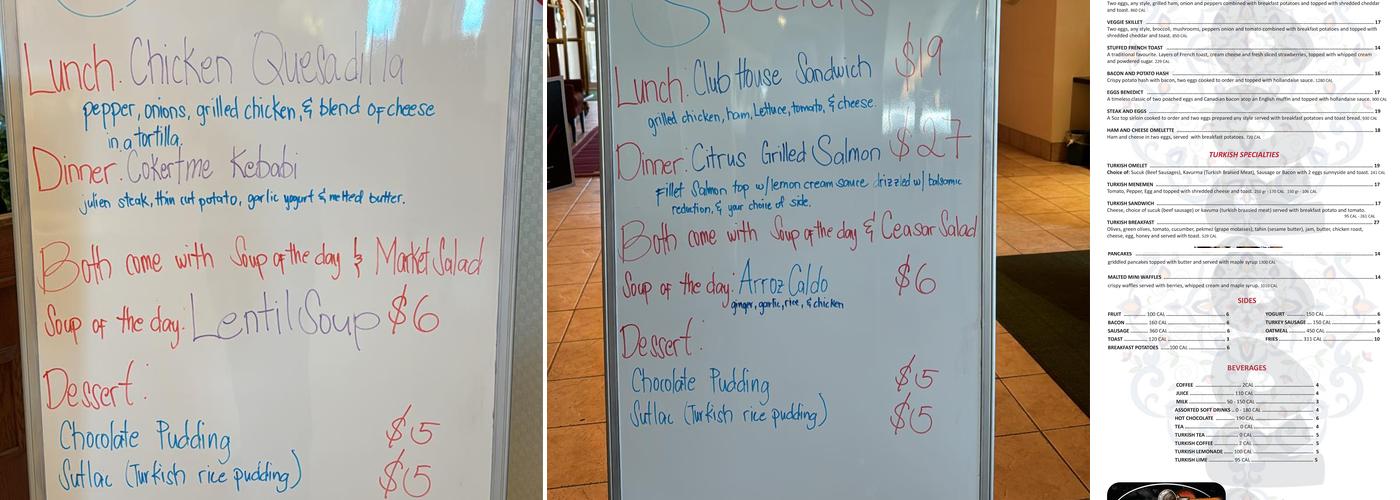 Lunch: Chicken Quesadilla
pepper, onions, grilled chicken, & blend of cheese
in a tortilla.
Dinner: Cokertme Kebabi
julien steak, thin cut potato, garlic yogurt & melted butter.
Both come with Soup of the day & Market Salad
Soup of the day: Lentil Soup $6
Dessert:
Chocolate Pudding $5
Sutlac (Turkish rice pudding) $5
Specials
Lunch: Club House Sandwich $19
grilled chicken, ham, Lettuce, tomato, & cheese.
Dinner: Citrus Grilled Salmon $27
Fillet Salmon top w/ lemon cream sauce drizzled w/ balsamic
reduction, & your choice of side.
Both come with Soup of the day & Ceasar Salad
Soup of the day: Arroz Caldo $6
ginger, garlic, rice, & chicken
Dessert:
Chocolate Pudding $5
Sutlac (Turkish rice pudding) $5
Two eggs, any style, grilled ham, onion and peppers combined with breakfast potatoes and topped with shredded cheddar
and toast. 860 CAL
VEGGIE SKILLET 17
Two eggs, any style, broccoli, mushrooms, peppers onion and tomato combined with breakfast potatoes and topped with
shredded cheddar and toast. 850 CAL
STUFFED FRENCH TOAST 14
A traditional favourite. Layers of French toast, cream cheese and fresh sliced strawberries, topped with whipped cream
and powdered sugar. 229 CAL
BACON AND POTATO HASH 16
Crispy potato hash with bacon, two eggs cooked to order and topped with hollandaise sauce. 1280 CAL
EGGS BENEDICT 17
A timeless classic of two poached eggs and Canadian bacon atop an English muffin and topped with hollandaise sauce. 900 CAL
STEAK AND EGGS 19
A 5oz top sirloin cooked to order and two eggs prepared any style served with breakfast potatoes and toast bread. 930 CAL
HAM AND CHEESE OMELETTE 18
Ham and cheese in two eggs, served with breakfast potatoes. 720 CAL
TURKISH SPECIALTIES
TURKISH OMELET 19
Choice of: Sucuk (Beef Sausages), Kavurma (Turkish Braised Meat), Sausage or Bacon with 2 eggs sunnyside and toast. 241 CAL
TURKISH MENEMEN 17
Tomato, Pepper, Egg and topped with shredded cheese and toast. 250 gr - 170 CAL 150 gr - 106 CAL
TURKISH SANDWICH 17
Cheese, choice of sucuk (beef sausage) or kavurma (turkish brassied meat) served with breakfast potato and tomato.
95 CAL - 261 CAL
TURKISH BREAKFAST 27
Olives, green olives, tomato, cucumber, pekmez (grape molasses), tahin (sesame butter), jam, butter, chicken roast,
cheese, egg, honey and served with toast. 529 CAL
PANCAKES 14
griddled pancakes topped with butter and served with maple syrup 1300 CAL
MALTED MINI WAFFLES 14
crispy waffles served with berries, whipped cream and maple syrup. 1010 CAL
SIDES
FRUIT 100 CAL 6
BACON 160 CAL 6
SAUSAGE 360 CAL 6
TOAST 120 CAL 3
BREAKFAST POTATOES 100 CAL 6
YOGURT 150 CAL 6
TURKEY SAUSAGE 150 CAL 6
OATMEAL 450 CAL 6
FRIES 311 CAL 10
BEVERAGES
COFFEE 2CAL 4
JUICE 110 CAL 4
MILK 50 - 150 CAL 3
ASSORTED SOFT DRINKS 0 - 180 CAL 4
HOT CHOCOLATE 190 CAL 6
TEA 0 CAL 4
TURKISH TEA 0 CAL 5
TURKISH COFFEE 2 CAL 5
TURKISH LEMONADE 100 CAL 5
TURKISH LIME 95 CAL 5